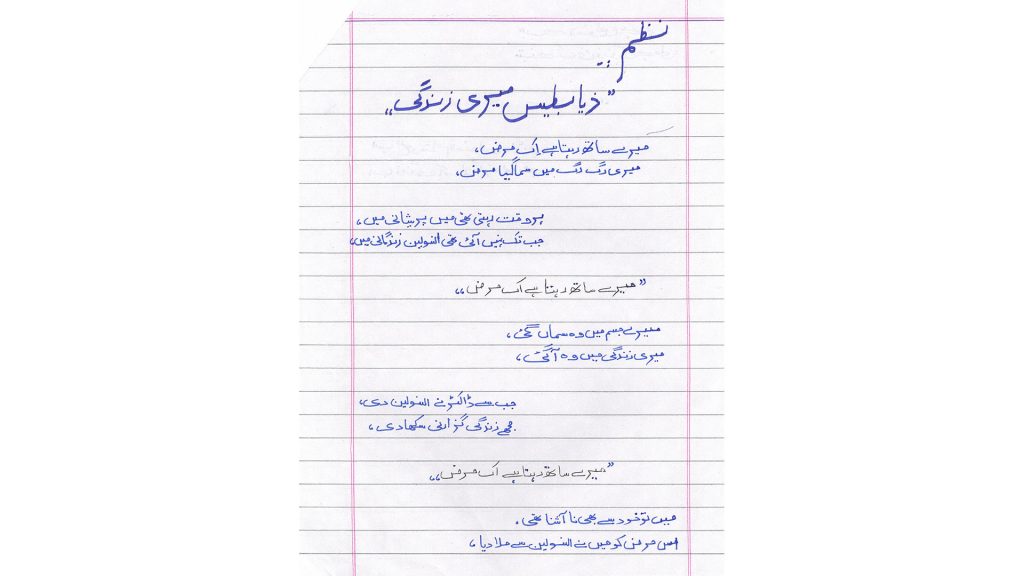 نظم:-
"ذیابطیس میری زندگی"
میرے ساتھ رہتا ہے اِک مرض،
میری رگ رگ میں سما گیا مرض،
ہر وقت رہتی تھی میں پریشانی میں،
جب تک نہیں آئی تھی انسولین زندگانی میں،
"میرے ساتھ رہتا ہے اک مرض"
میرے جسم میں وہ سماں گئی،
میری زندگی میں وہ آ گئی،
جب سے ڈاکٹر نے انسولین دی،
مجھے زندگی گزارنی سکھا دی،
"میرے ساتھ رہتا ہے اک مرض"
میں تو خود سے بھی نا آشنا تھی،
اس مرض کو میں نے انسولین سے ملا دیا،